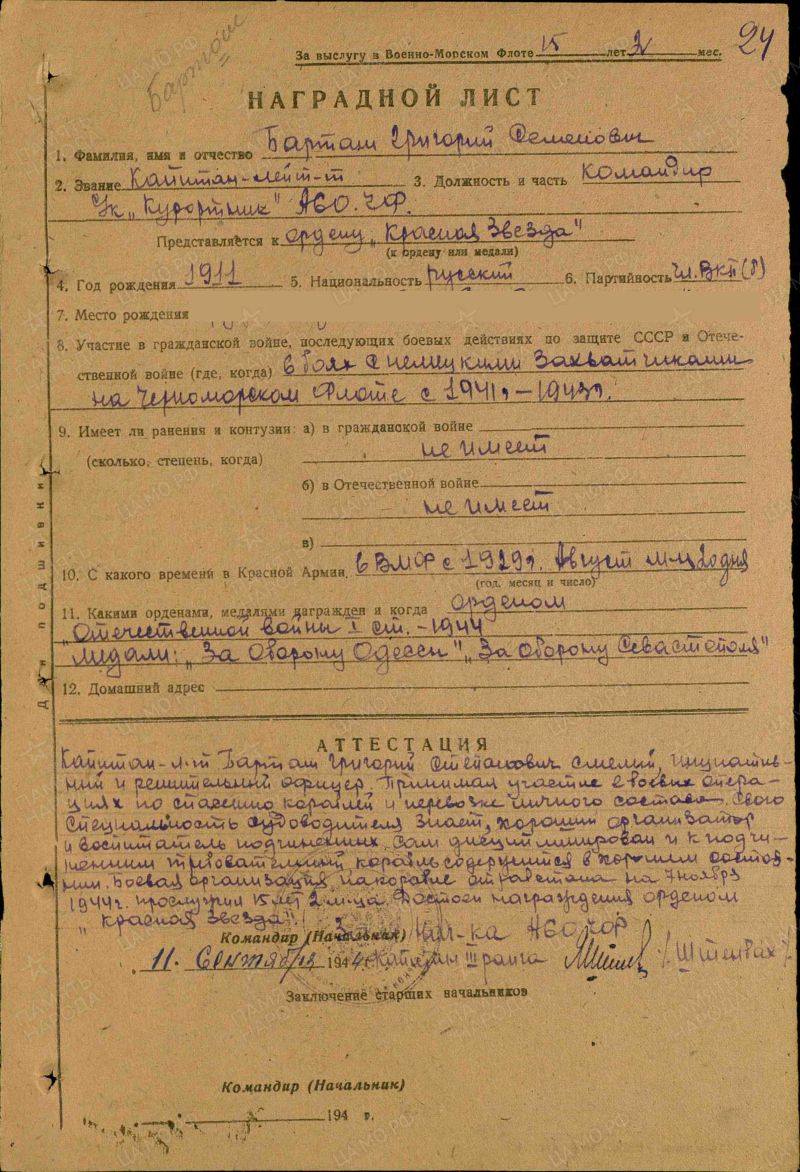 За выслугу в Военно-Морском Флоте 15 лет 2 мес.
24
НАГРАДНОЙ ЛИСТ
1. Фамилия, имя и отчество Барташ Григорий Семенович
2. Звание Капитан-лейт-т 3. Должность и часть Командир
"Курортник" АСО. ЧФ.
Представляется к ордену „Красная Звезда"
(к ордену или медали)
4. Год рождения 1911 5. Национальность русский 6. Партийность чл. ВКП(б)
7. Место рождения
8. Участие в гражданской войне, последующих боевых действиях по защите СССР и Отече-
ственной войне (где, когда) в боях с немецкими захватчиками
на Черноморском Флоте с 1941г – 1943г.
9. Имеет ли ранения и контузии: а) в гражданской войне
не имеет
(сколько, степень, когда)
б) в Отечественной войне
не имеет
в)
10. С какого времени в Красной Армии, в ВМФ с 1929г. Август м-ц 20 дня
(год, месяц и число)
11. Какими орденами, медалями награжден и когда орденом
"Отечественной войны I ст. – 1944
медали: „За Оборону Одессы" „За оборону Севастополя"
12. Домашний адрес
Для подшивки
АТТЕСТАЦИЯ
Капитан-л-т Барташ Григорий Степанович смелый, инициатив-
ный и решительный офицер. Принимал участие в боевых опера-
циях по спасению кораблей и перевозке личного состава. Свою
специальность судоводителя знает, хороший организатор
и воспитатель подчиненных. Сам дисциплинирован и к подчи-
ненным требователный, корабль содержится в хорошем состоя-
нии. Боевая организация на корабле отработана на 7 ноября
1944г. прослужил 15 лет 2 м-ца. Достоин награждения орденом
„Красная Звезда".
Командир (Начальник) Нач-ка АСО ЧФ
11. Сентября 1944 г. Капитан III ранга /Штенбах/
Заключение старших начальников
Командир (Начальник)
194 г.